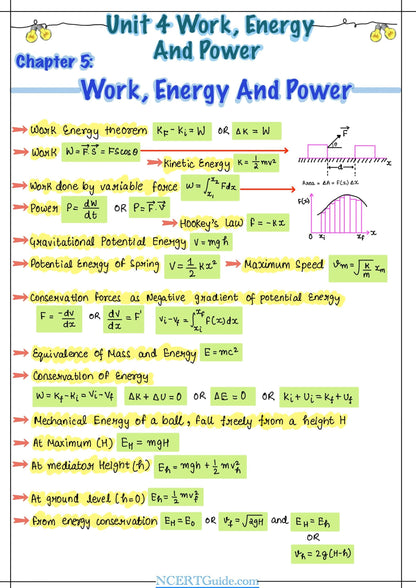 Unit 4 Work, Energy
And Power
Chapter 5:
Work, Energy And Power
Work Energy theorem K_F - K_i = W OR ΔK = W
Work W = F⃗.S⃗ = FScosθ
F⃗
θ
d
x
Kinetic Energy K = 1/2 mv²
Work done by variable force W = ∫_{x_i}^{x_2} Fdx
Area = ΔA = F(x) Δx
Power P = dW/dt OR P = F⃗.V⃗
F(x)
0 x_i x_f x
Hookey's Law F = -kx
Gravitational Potential Energy V = mgh
Potential Energy of Spring V = 1/2 Kx² Maximum Speed v_m = √(K/m) x_m
Conservation Forces as Negative gradient of potential Energy
F = -dv/dx OR dv/dx = F' V_i - V_f = ∫_{x_i}^{x_f} F(x)dx
Equivalence of Mass and Energy E = mc²
Conservation of Energy
W = K_f - K_i = V_i - V_f ΔK + ΔU = 0 OR ΔE = 0 OR K_i + U_i = K_f + U_f
Mechanical Energy of a ball, fall freely from a height H
At Maximum (H) E_H = mgH
At mediator Height (h) E_h = mgh + 1/2 mv²_h
At ground level (h=0) E_h = 1/2 mv²_f
From energy conservation E_H = E_0 OR V_f = √2gH and E_H = E_h
OR
V_h = 2g(H-h)
NCERTGuide.com